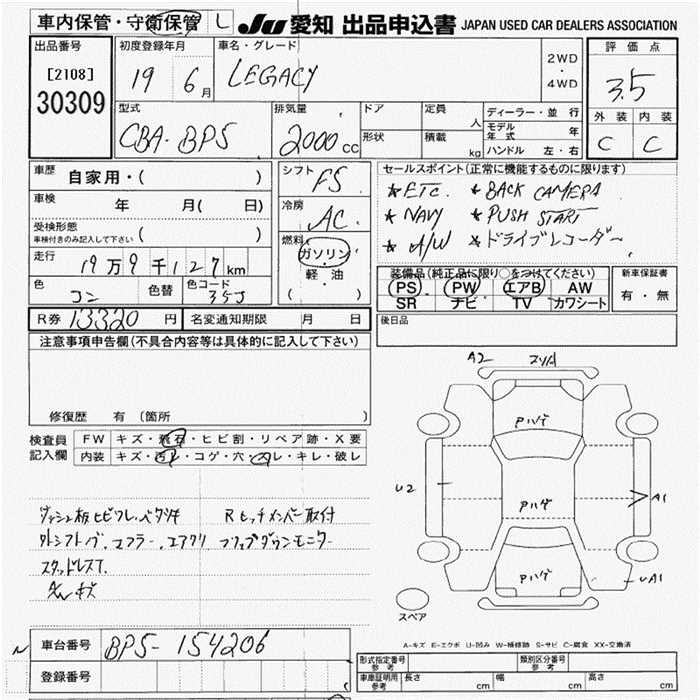 車内保管・守衛保管 L JU 愛知 出品申込書 JAPAN USED CAR DEALERS ASSOCIATION
出品番号 [2108] 30309
初度登録年月 19 6月
車名・グレード LEGACY
2WD ・ 4WD
評価点 3.5
外装 内装
C C
型式 CBA-BP5
排気量 2000cc
ドア 定員 人
形状 積載 kg
ディーラー・並行
モデル年式 年
ハンドル 左・右
車歴 自家用・( )
車検 年 月( 日)
受検形態 車検付きのみ記入して下さい ( )
走行 19万9千127km
色 コン 色替 色コード 35J
シフト F5
冷房 AC
燃料 ガソリン・軽油 ( )
セールスポイント(正常に機能するものに限ります)
★ETC. ★BACK CAMERA
★NAVY ★PUSH START
★A/W ★ドライブレコーダー
装備品(純正品に限り○をつけてください)
PS PW エアB AW
SR ナビ TV カワシート
新車保証書 有・無
R券 13320円 名変通知期限 月 日
後日品
注意事項申告欄(不具合内容等は具体的に記入して下さい)
修復歴 有 (箇所
検査員記入欄
FW キズ・飛石・ヒビ割・リペア跡・X要
内装 キズ・汚レ・コゲ・穴・スレ・キレ・破レ
ダッシュ板ヒビワレ・ベタツキ Rヒッチメンバー取付
外シフトノブ、マフラー、エアクリ フリップダウンモニター
スタッドレスT.
キズ
A2
Pハゲ
U2 Pハゲ A1
Pハゲ UA1
スペア
A-キズ E-エクボ U-凹み W-補修跡 S-サビ C-腐食 XX-交換済
車台番号 BP5-154206
登録番号
形式指定番号 参考 類別区分番号 参考
車庫証明用 参考 長さ cm 幅 cm 高さ cm